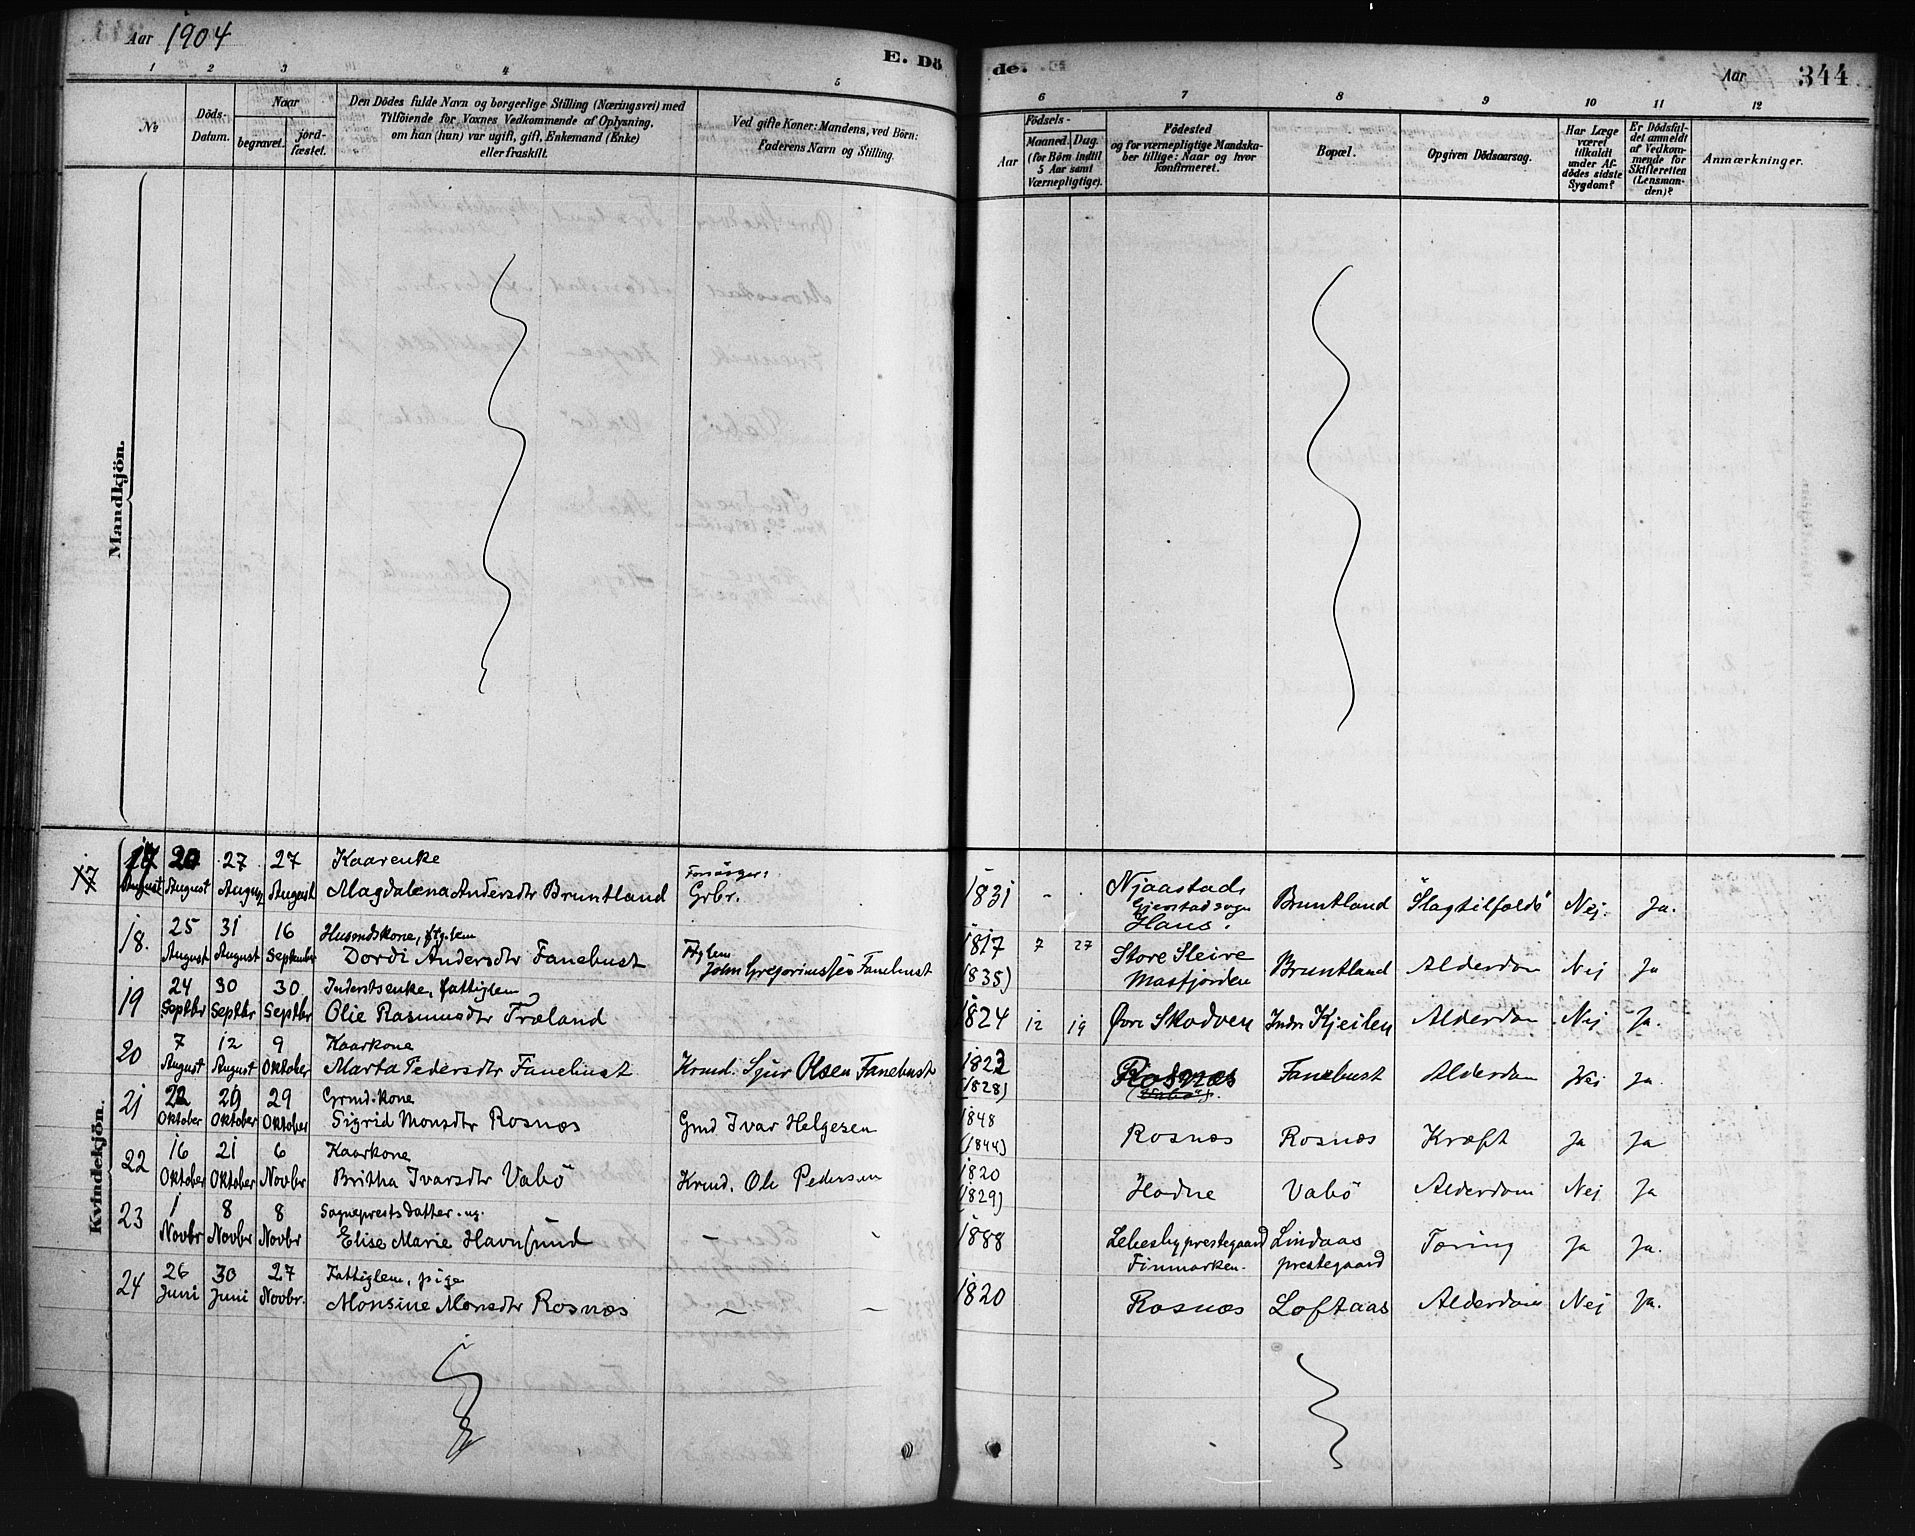 Aar 1904
E. Döde.
Aar 344
1 2 3 4 5 6 7 8 9 10 11 12
№
Döds-Datum.
Naar
begravet. jord-fæstet.
Den Dödes fulde Navn og borgerlige Stilling (Næringsvei) med
Tilföiende for Voxnes Vedkommende af Oplysning,
om han (hun) var ugift, gift, Enkemand (Enke)
eller fraskilt.
Ved gifte Koner: Mandens, ved Börn:
Faderens Navn og Stilling.
Födsels-
Aar
Maaned. Dag.
(for Börn indtil
5 Aar samt
Værnepligtige).
Födested
og for værnepligtige Mandska-
ber tillige: Naar og hvor
konfirmeret.
Bopæl.
Opgiven Dödsaarsag.
Har Læge
været
tilkaldt
under Af-
dödes sidste
Sygdom?
Er Dödsfal-
det anmeldt
af Vedkom-
mende for
Skifteretten
(Lensman-
den)?
Anmærkninger.
Mandkjön.
Kvindekjön.
17 20 27 27 Kaarenke
August August August Magdalena Andersdtr Bruntland Grbr. 1831 - Njaastad, Gjerstad sogn Haus. Bruntland "Slagtilfælde" Nej. Ja.
18. 25 31 16 Husmdskone, ftglem
August August September Dordi Andersdtr Fanebust Ftglem John Gregoriussen Fanebust 1817 (1835) 7 27 Store Sleire Masfjorden Bruntland Alderdom Nej Ja
19 24 30 30 Inderstsenke, fattiglem
Septbr Septbr Septbr Olie Rasmusdtr Træland 1824 12 19 Øvre Skodven Indre Kjeilen Alderdom Nej Ja.
20 7 12 9 Kaarkone
August August Oktober Marta Pedersdtr Fanebust Krmd. Sjur Olsen Fanebust 1823 (1828) Rosnæs (Vabö). Fanebust Alderdom Nej Ja.
21 22 29 29 Grmd.kone
Oktober Oktober Oktober Sigrid Monsdtr Rosnæs Gmd Ivar Helgesen 1848 (1844) Rosnæs Rosnæs Kræft Ja Ja
22 16 21 6 Kaarkone
Oktober Oktober Novbr Britha Ivarsdtr Vabö Krmd. Ole Pedersen 1820 (1829) Hodne Vabö Alderdom Nej Ja
23 1 8 8 Sogneprests datter. ug.
Novbr Novbr Novbr Elise Marie Havnsund - 1888 Lebesby prestegaard Finmarken. Lindaas prestegaard Tæring Ja Ja.
24 26 30 27 Fattiglem, pige
Juni Juni Novbr. Monsine Monsdtr Rosnæs - 1820 Rosnæs Loftaas Alderdom Nej Ja.